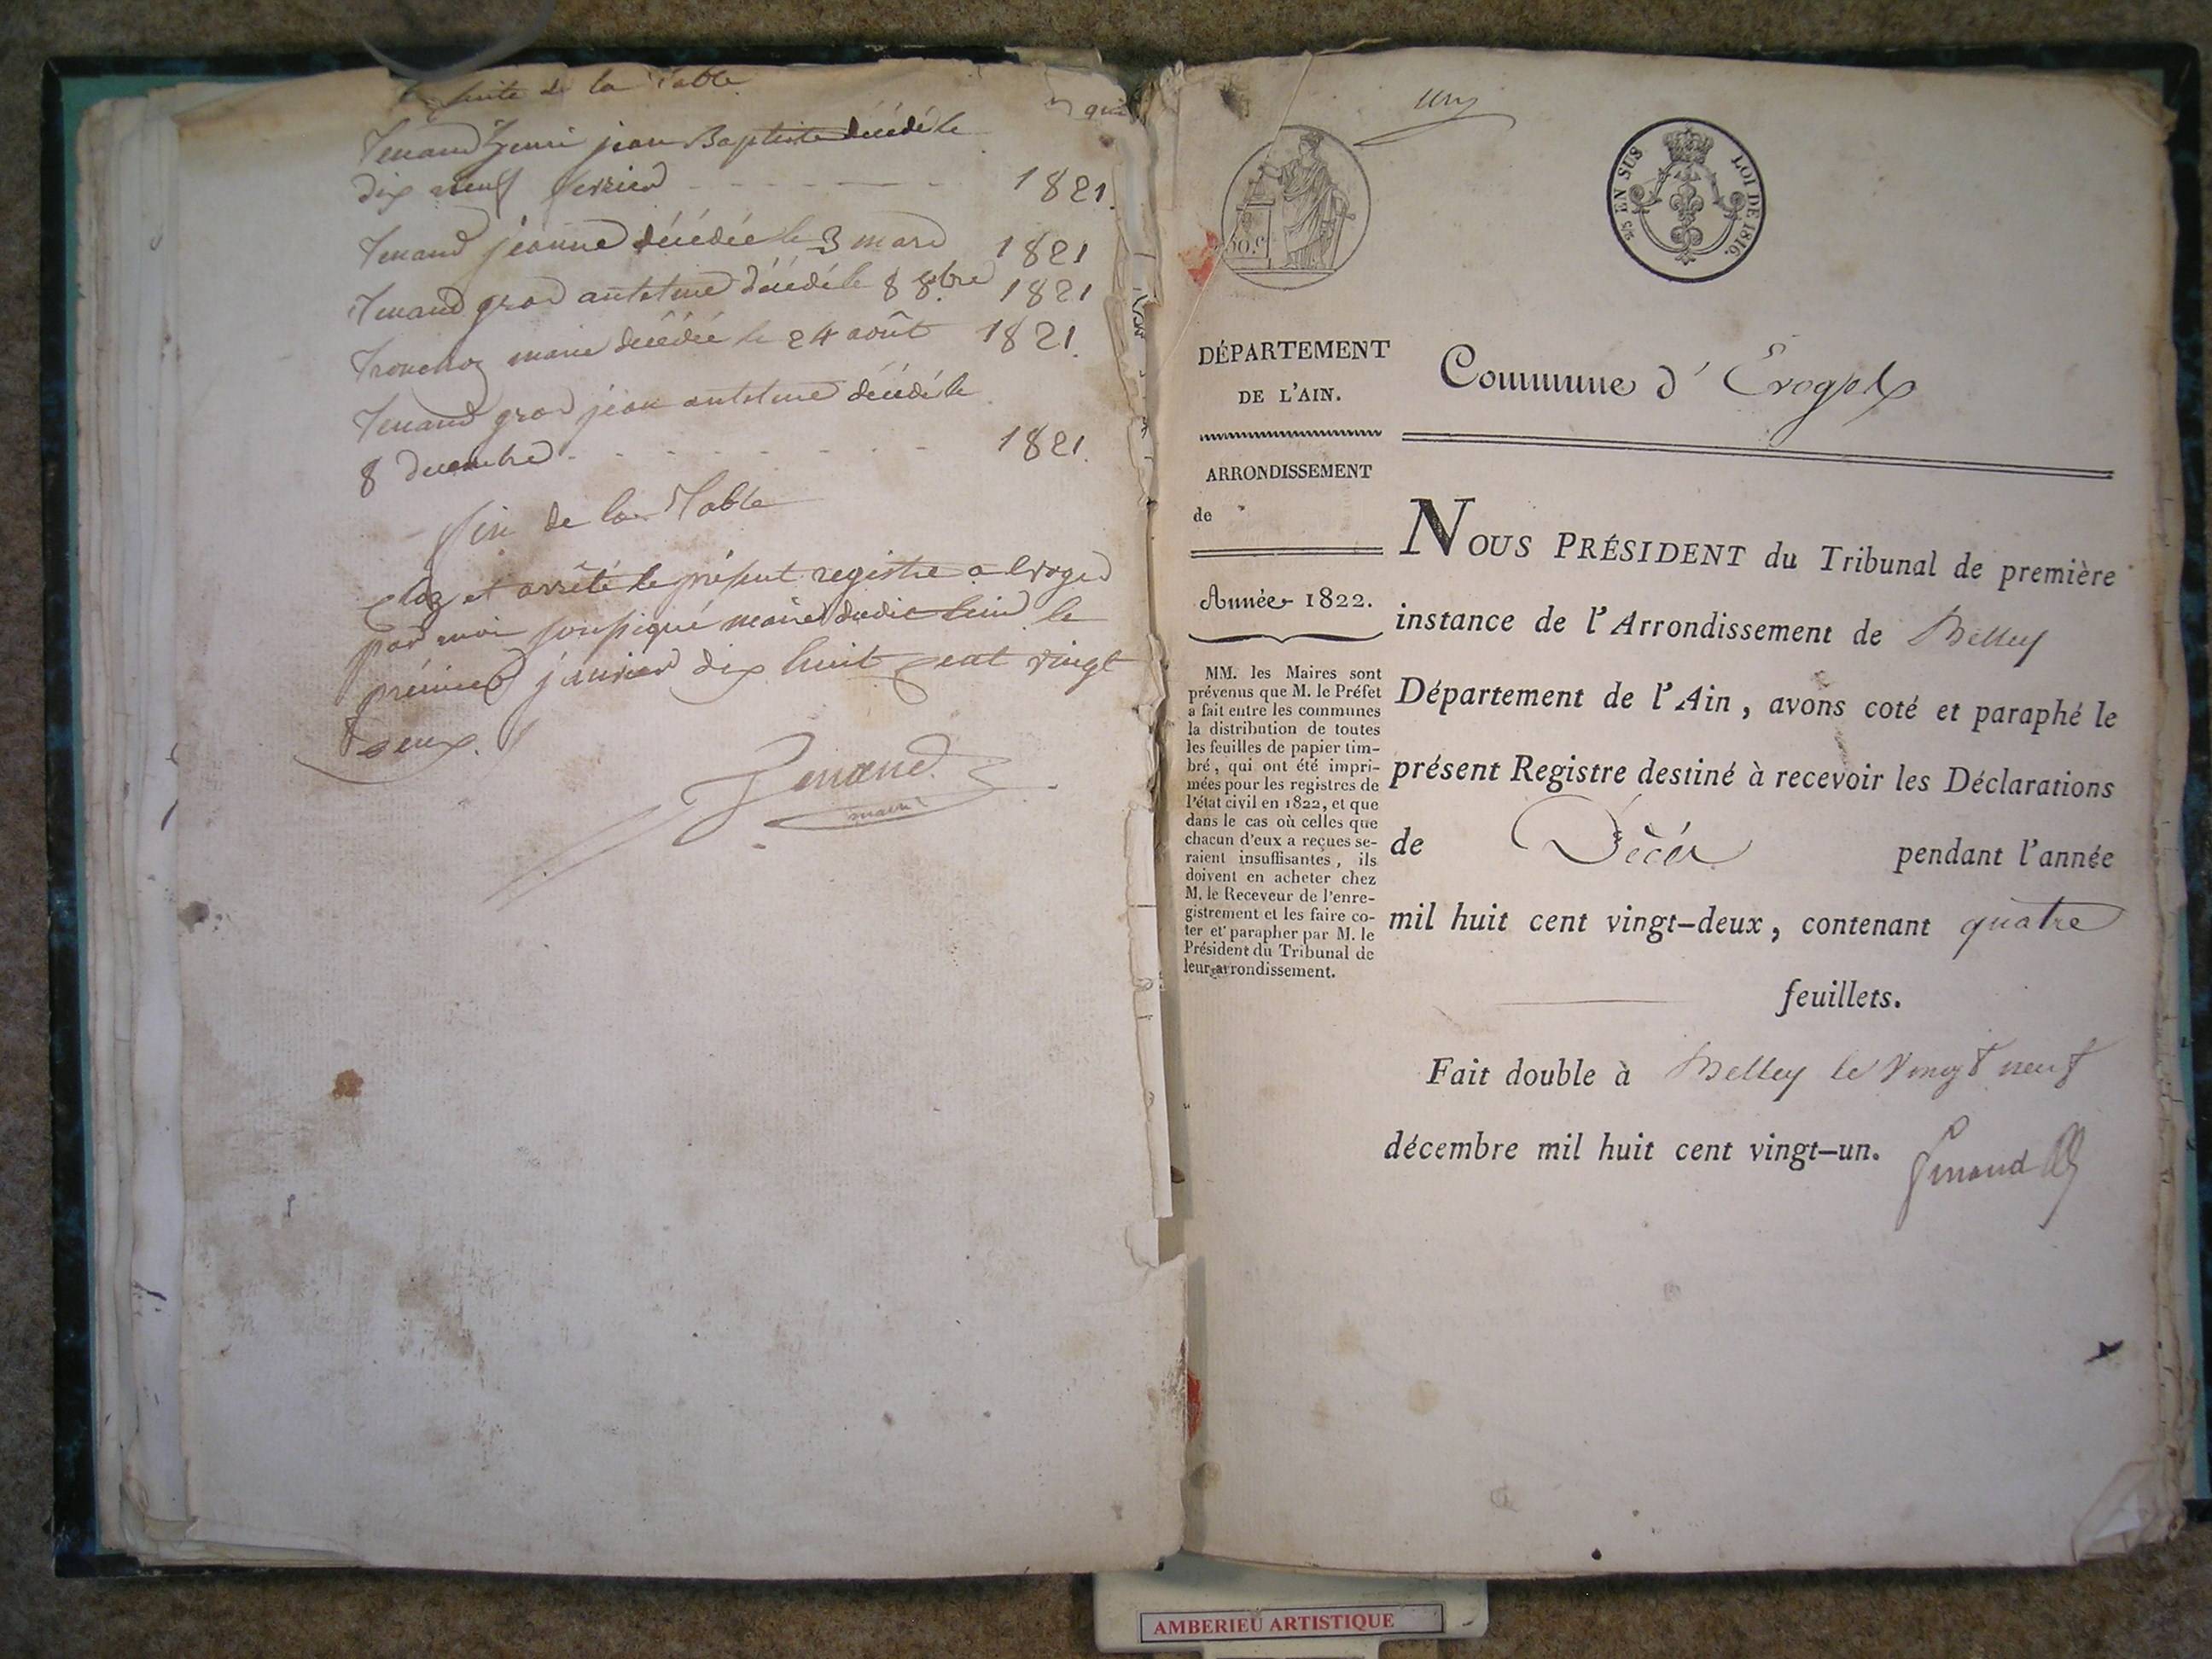 suite de la Table
Tenand henri jean Baptiste décédé le
dix neuf fevrier - - - - - - 1821.
Tenand jeanne décédée le 3 mars 1821
Tenand gros antelme décédé le 8 8bre 1821
Tronchoz marie décédée le 24 août 1821.
Tenand gros jean antelme décédé le
8 decembre - - - - - - - - 1821.
fin de la Table
Cloz et arrêté le présent registre a Evoges
par moi soussigné maire dudit lieu le
premier janvier dix huit cent vingt
deux.
Tenand
maire
un
50.c
2/5 EN SUS
LOI DE 1816.
DÉPARTEMENT
DE L'AIN.
ARRONDISSEMENT
de
Année 1822.
MM. les Maires sont
prévenus que M. le Préfet
a fait entre les communes
la distribution de toutes
les feuilles de papier tim-
bré, qui ont été impri-
mées pour les registres de
l'état civil en 1822, et que
dans le cas où celles que
chacun d'eux a reçues se-
raient insuffisantes, ils
doivent en acheter chez
M. le Receveur de l'enre-
gistrement et les faire co-
ter et parapher par M. le
Président du Tribunal de
leur arrondissement.
Commune d'Evoges
NOUS PRÉSIDENT du Tribunal de première
instance de l'Arrondissement de Belley
Département de l'Ain, avons coté et paraphé le
présent Registre destiné à recevoir les Déclarations
de Décès pendant l'année
mil huit cent vingt-deux, contenant quatre
feuillets.
Fait double à Belley le vingt neuf
décembre mil huit cent vingt-un.
AMBERIEU ARTISTIQUE